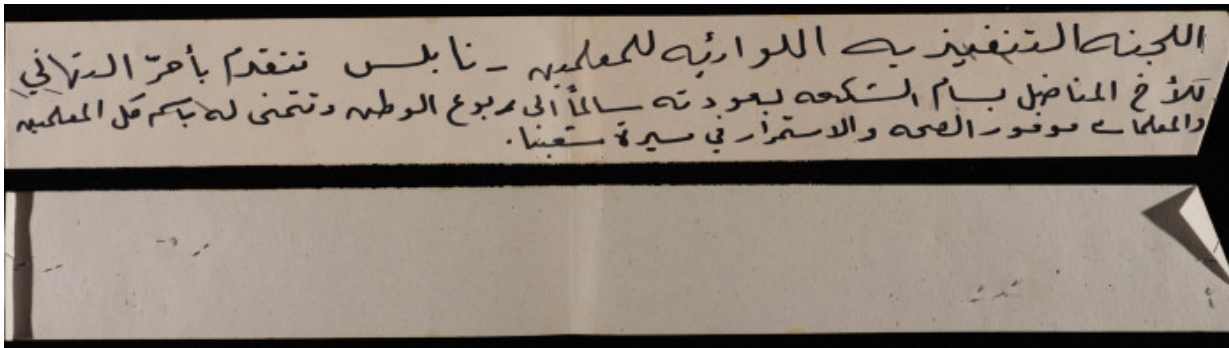 اللجنه التنفيذيه اللوائيه للمعلمين - نابلس تتقدم بأحرّ التهاني
للأخ المناضل بسام الشكعه بعودته سالماً الى ربوع الوطن وتتمنى له باسم كل المعلمين
والمعلمات موفور الصحه والاستمرار في مسيرة شعبنا.